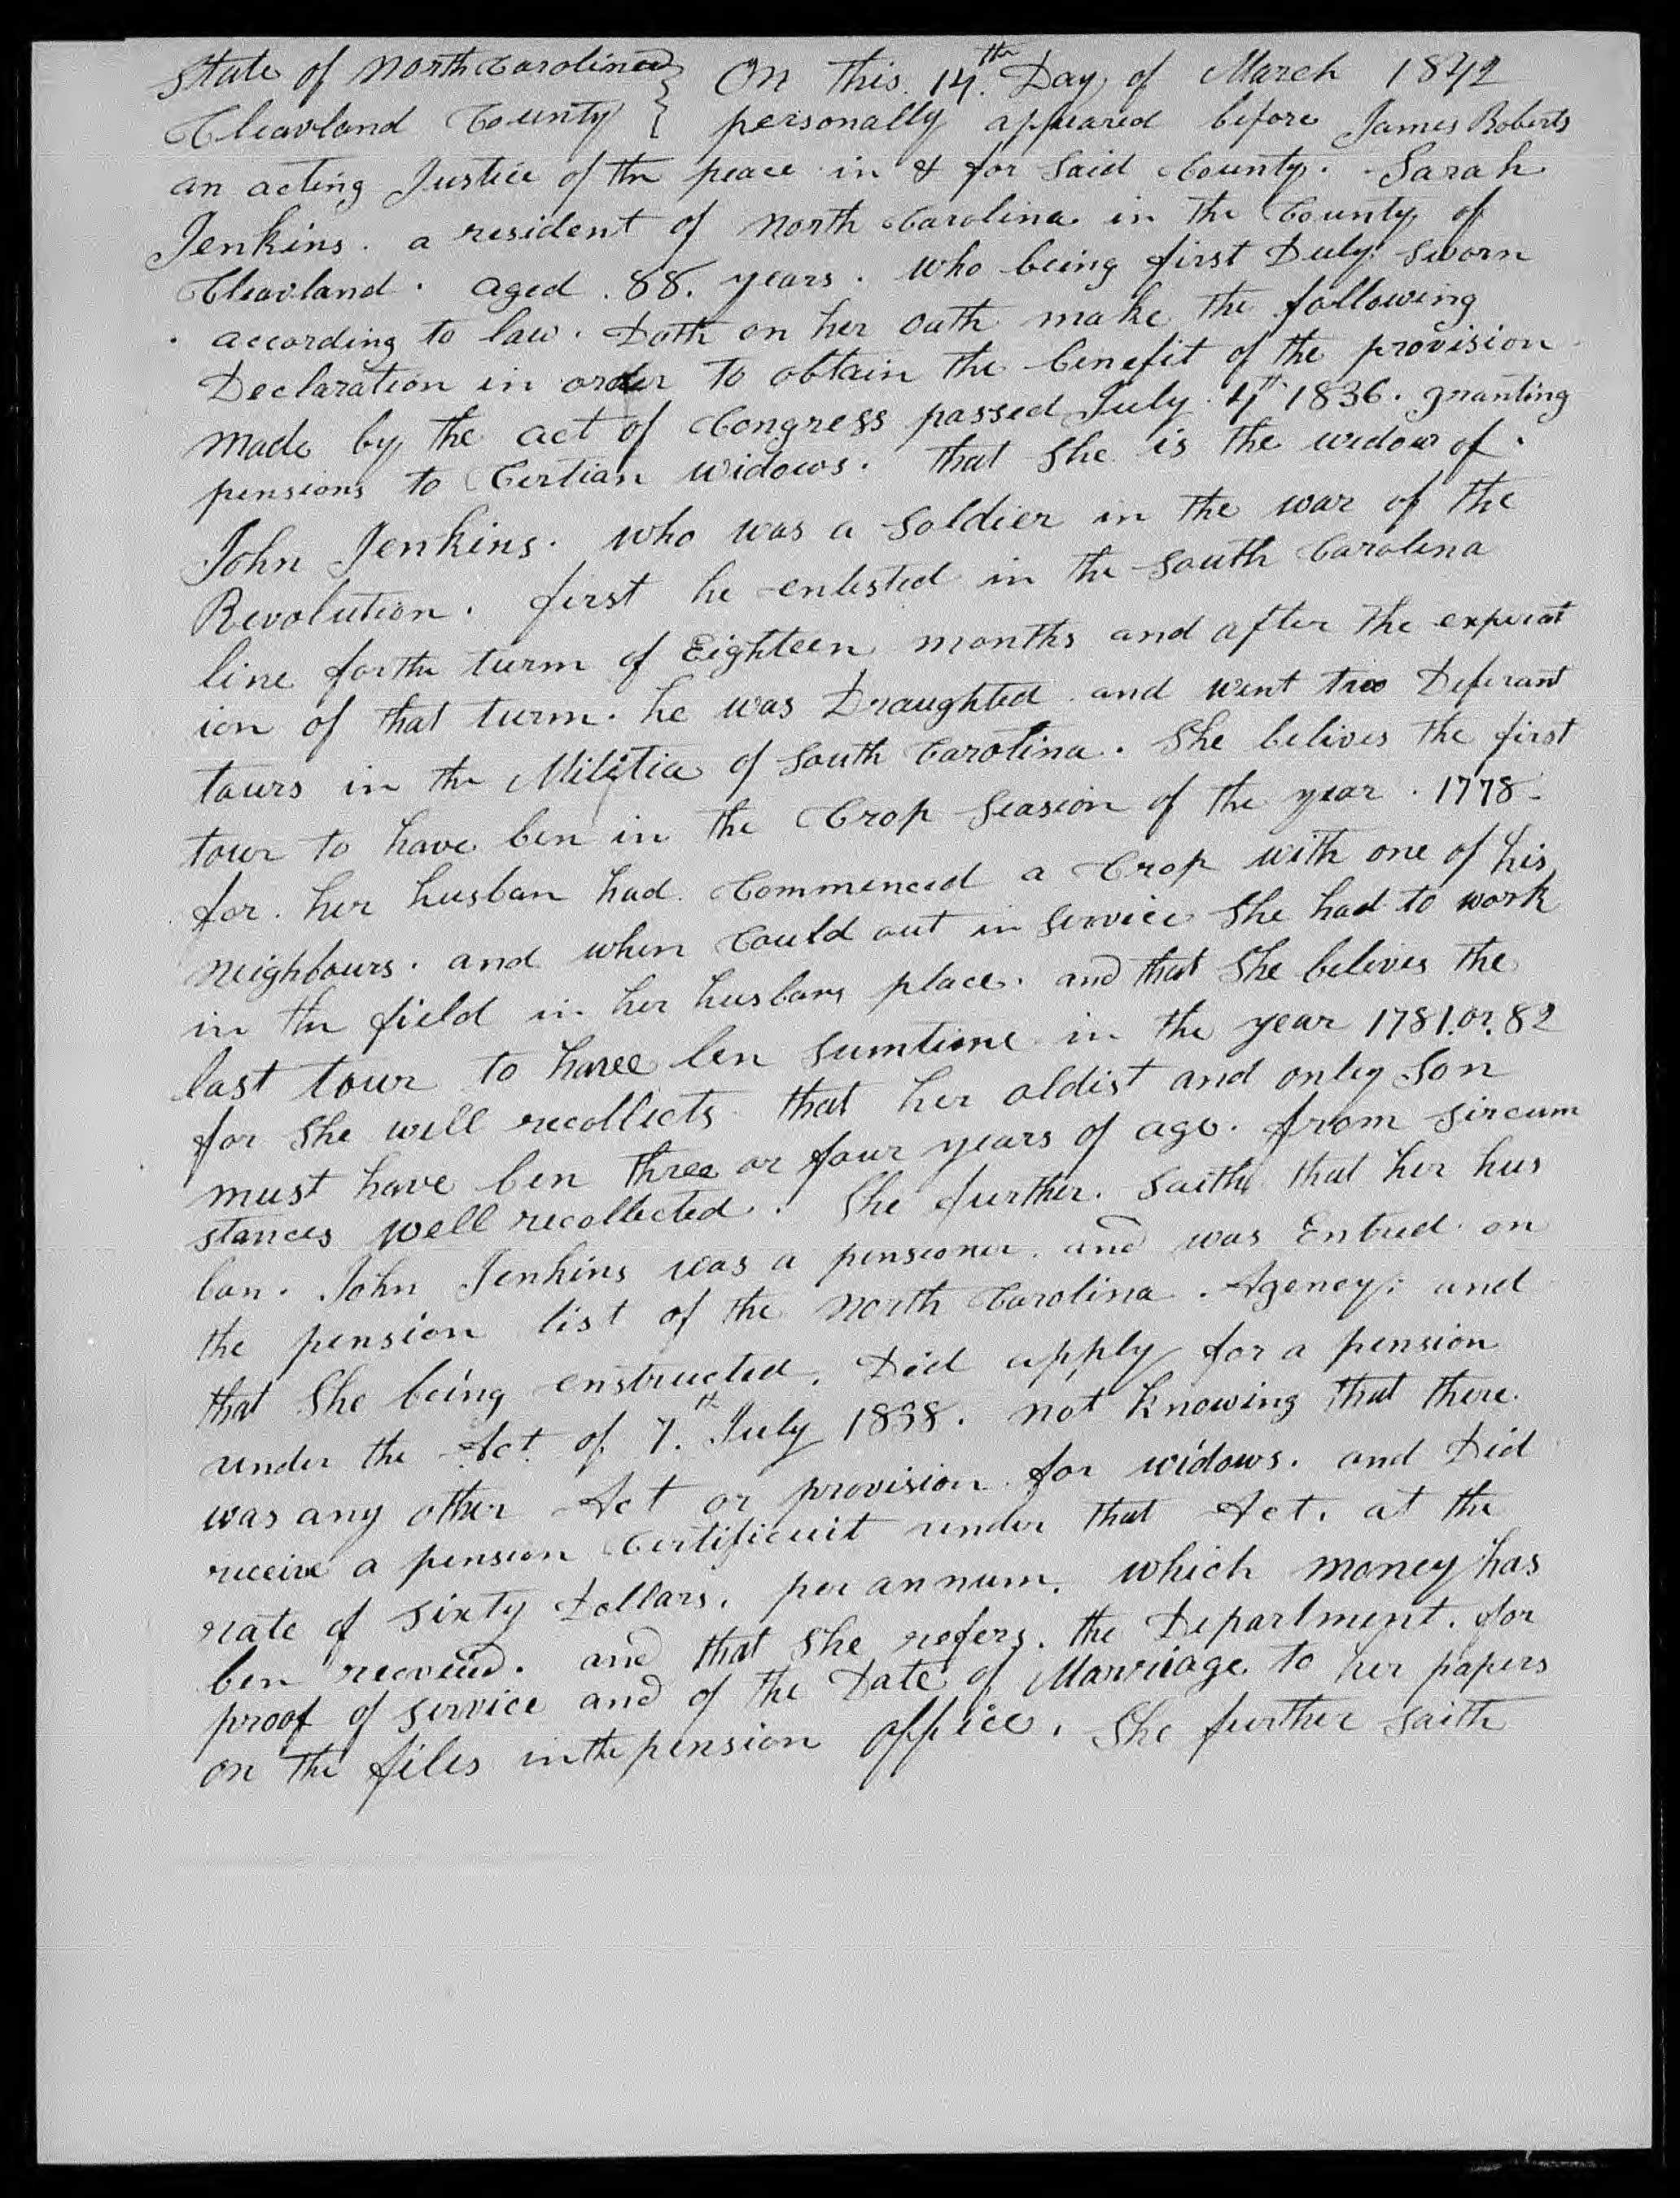 State of North Carolina } On this. 14th. Day of March 1842
Cleavland County } personally appeared before James Roberts
an acting Justice of the peace in & for said County. Sarah
Jenkins. a resident of North Carolina in the County of
Cleavland. aged. 88. years. who being first Duly sworn
according to law. Doth on her oath make the following
Declaration in order to obtain the benefit of the provision
made by the act of Congress passed July. 4th 1836. granting
pensions to Certian widows. that she is the widow of.
John Jenkins. who was a soldier in the war of the
Revolution. first he enlisted in the South Carolina
line for the turm of Eighteen months and after the expirat
ion of that turm. he was Draughted and went two Deferant
tours in the Militia of South Carolina. She belives the first
tour to have ben in the Crop seasion of the year. 1778-
for. her husban had Commenced a Crop with one of his
neighbours. and when Could out in service she had to work
in the field in her husbans place. and that she belives the
last tour to have ben sumtime in the year 1781. or. 82
for she well recollects that her oldist and only son
must have ben three or four years of age. from sircum
stances well recollected. She further. saith that her hus
ban. John Jenkins was a pensioner and was Entred on
the pension list of the North Carolina. Agency: and
that she being enstructed. Did apply for a pension
under the Act of 7.th July 1838. not knowing that there
was any other Act or provision for widows. and Did
receive a pension Certificuit under that Act. at the
rate of sixty Dollars. per annum. which money has
ben recveied. and that she refers. the Department. for
proof of service and of the Date of Marriage to her papers
on the files in the pension office. She further saith